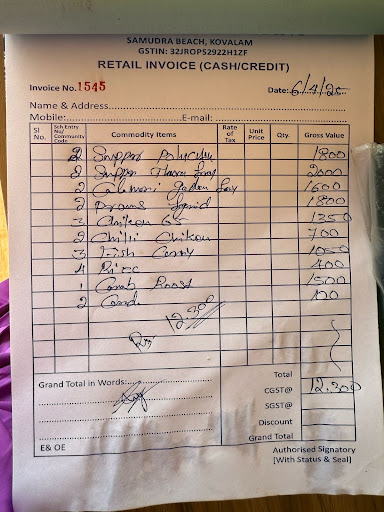 SAMUDRA BEACH, KOVALAM
GSTIN: 32JROPS2922H1ZF
RETAIL INVOICE (CASH/CREDIT)
Invoice No. 1545 Date: 6/4/25
Name & Address
Mobile: E-mail:
Sl No. Sch Entry No/ Community Code Commodity Items Rate of Tax Unit Price Qty. Gross Value
2 Snapper 1800
2 Snapper 2000
2 Calamari 1600
2 Prawns Squid 1800
3 Chiken 65 1350
2 Chilli Chiken 700
3 Fish Curry 1050
4 Rice 400
1 Crab Roast 1500
2 100
12.300
Grand Total in Words: Total
CGST@ 12.300
SGST@
Discount
Grand Total
E& OE Authorised Signatory
[With Status & Seal]